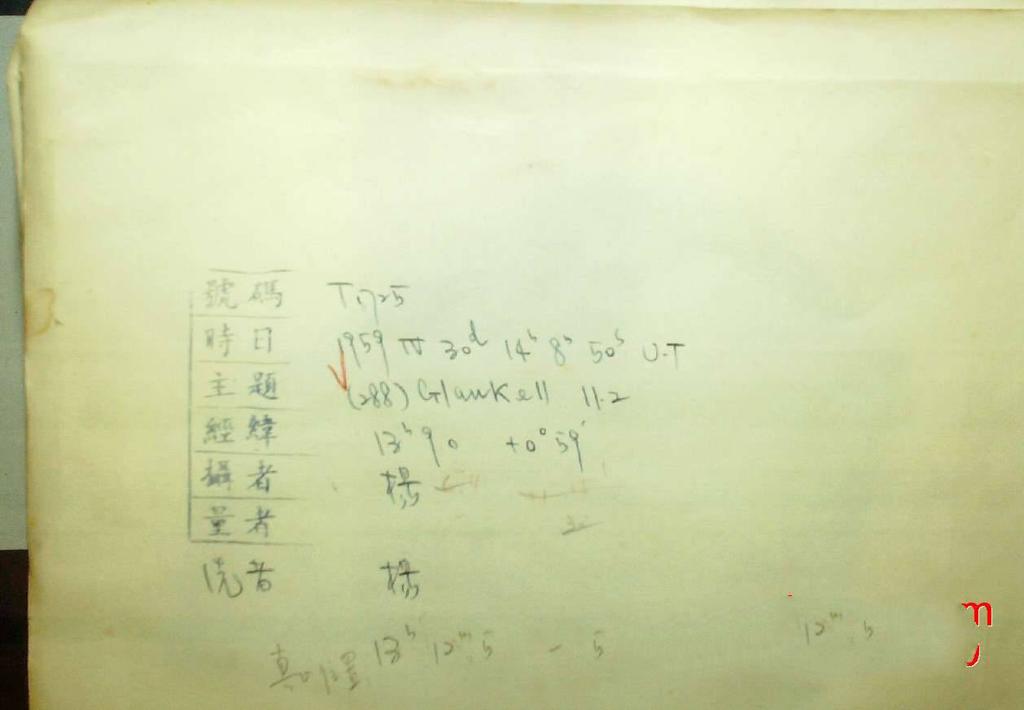 號碼 T1725
時日 1959 IV 30d 14h 8m 50s U.T
主題 (288) Glaukell 11.2
經緯 13h 9.0 +0° 59'
攝者 楊
量者
洗者 楊
13h 12m.5 - 5 12m.5